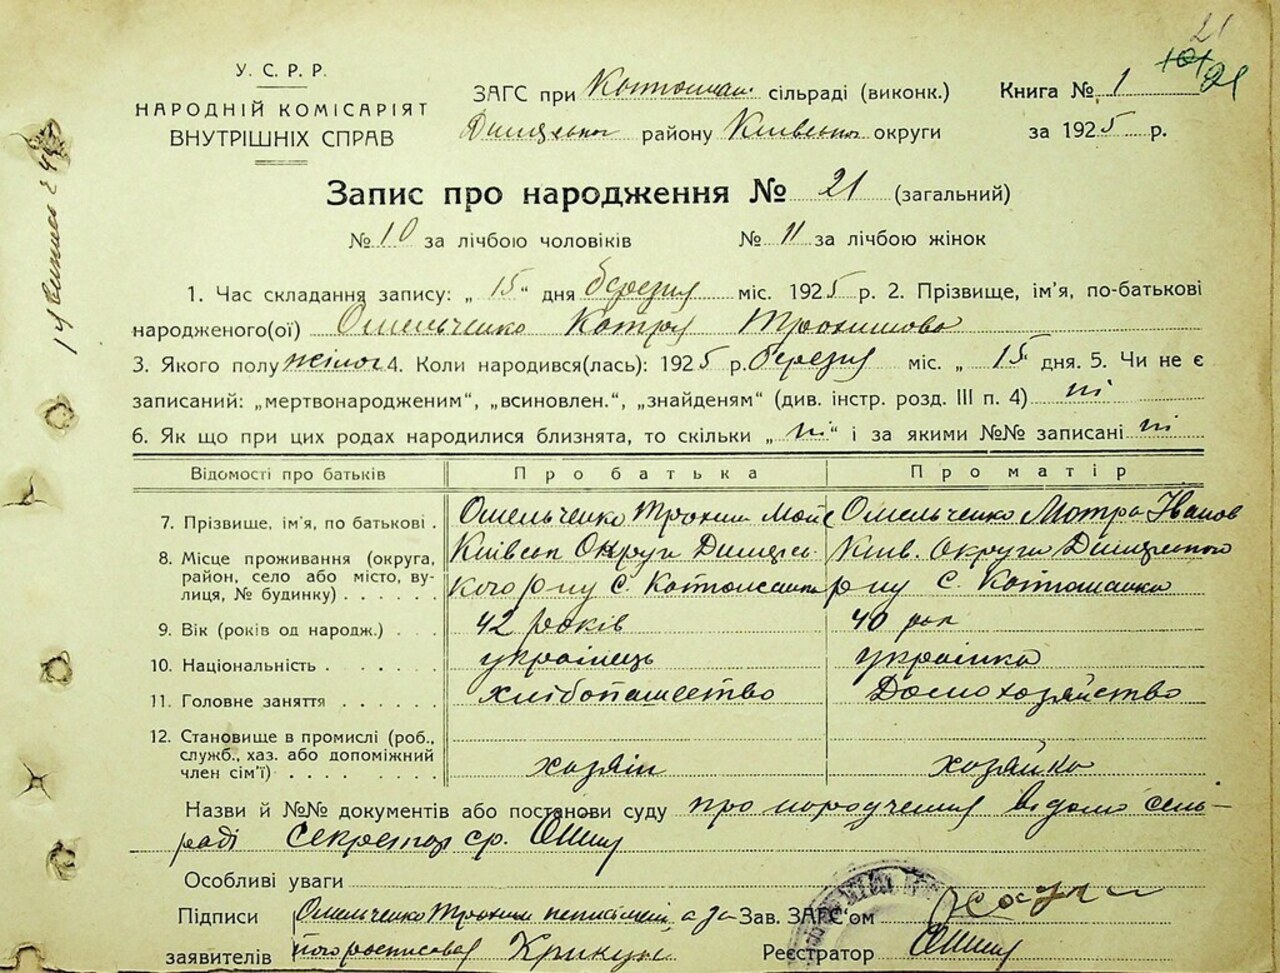 21
У. С. Р. Р.
НАРОДНІЙ КОМІСАРІЯТ
ВНУТРІШНІХ СПРАВ
ЗАГС при сільраді (виконк.)
району Київської округи
Книга № 1
101 21
за 1925 р.
Запис про народження № 21 (загальний)
№ 10 за лічбою чоловіків № 11 за лічбою жінок
1. Час складання запису: „ 15 “ дня березня міс. 1925 р. 2. Прізвище, ім’я, по-батькові
народженого(ої) Омельченко Катря Трохимовна
3. Якого полу жіноч 4. Коли народився(лась): 1925 р. березня міс. „ 15 дня. 5. Чи не є
записаний: „мертвонародженим“, „всиновлен.“, „знайденям“ (див. інстр. розд. III п. 4) ні
6. Як що при цих родах народилися близнята, то скільки „ ні “ і за якими №№ записані ні
Відомості про батьків Про батька Про матір
7. Прізвище, ім’я, по батькові . Омельченко Трохим Мой Омельченко Мотра Іванов
8. Місце проживання (округа, район, село або місто, вулиця, № будинку) . . . . .
Київськ Округи
с.
Київ. Округи
р ну с.
9. Вік (років од народж.) . . . 42 років 40 рок
10. Національність . . . . . українець українка
11. Головне заняття . . . . . . хлібопашество Домохозяйство
12. Становище в промислі (роб.,
служб., хаз. або допоміжний
член сім’ї) . . . . . . . . хозяін хозяйка
Назви й №№ документів або постанови суду про народження відомо сель-
раді Секретар ср.
Особливі уваги
Підписи Омельченко Трохим неписьмений а за Зав. ЗАГС‘ом
заявителів його росписався Крикун Реєстратор